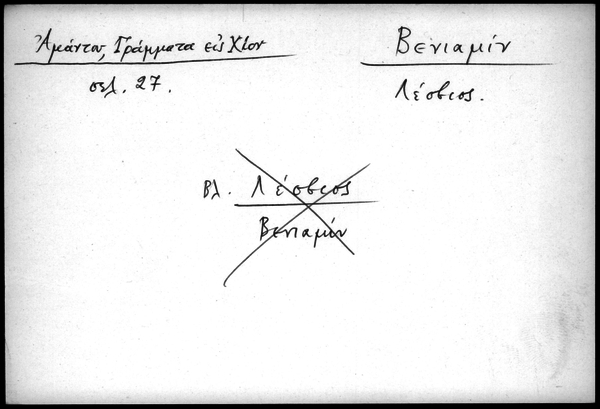 Ἀμάντου, Γράμματα εἰς Χῖον
σελ. 27.
Βενιαμίν
Λέσβιος.
Βλ. Λέσβιος
Βενιαμίν